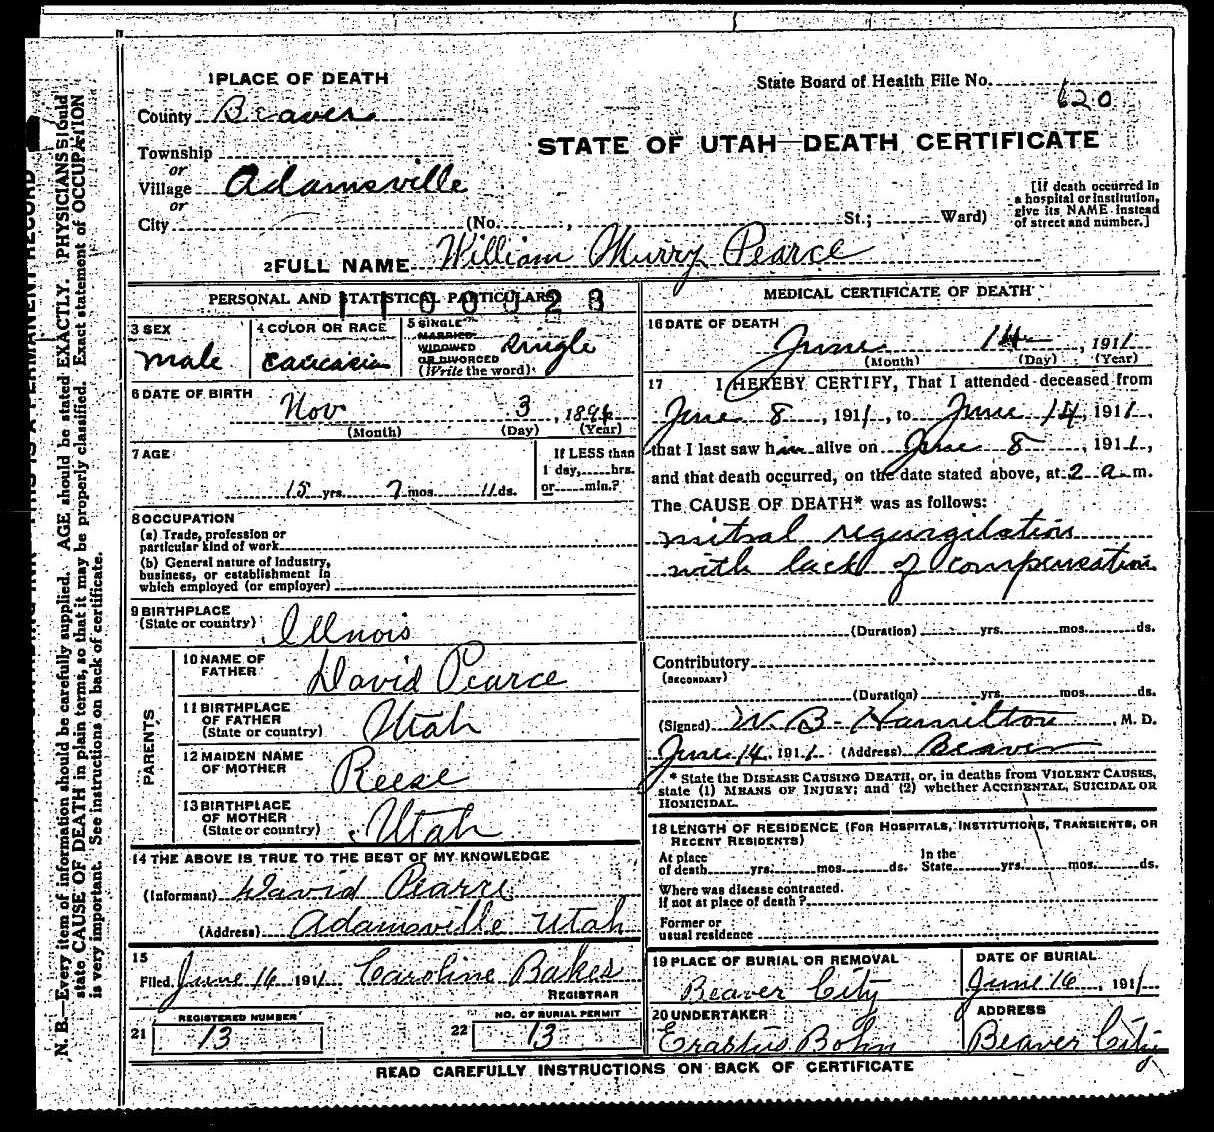 1 PLACE OF DEATH
State Board of Health File No. 620
County Beaver
STATE OF UTAH—DEATH CERTIFICATE
Township
or
Village Adamsville
or
City (No. , St.; Ward)
[If death occurred in
a hospital or institution,
give its NAME instead
of street and number.]
2 FULL NAME William Murry Pearce
PERSONAL AND STATISTICAL PARTICULARS
3 SEX
male
4 COLOR OR RACE
caucasian
5 SINGLE
MARRIED
WIDOWED
OR DIVORCED
(Write the word)
single
6 DATE OF BIRTH
Nov 3, 189
(Month) (Day) (Year)
7 AGE
15 yrs. 7 mos. 11 ds.
If LESS than
1 day, hrs.
or min.?
8 OCCUPATION
(a) Trade, profession or
particular kind of work
(b) General nature of Industry,
business, or establishment in
which employed (or employer)
9 BIRTHPLACE
(State or country) Illnois
PARENTS
10 NAME OF
FATHER David Pearce
11 BIRTHPLACE
OF FATHER
(State or country) Utah
12 MAIDEN NAME
OF MOTHER Reese
13 BIRTHPLACE
OF MOTHER
(State or country) Utah
14 THE ABOVE IS TRUE TO THE BEST OF MY KNOWLEDGE
(Informant) David Pearce
(Address) Adamsville Utah
15
Filed June 16 1911 Caroline Bakes
REGISTRAR
21 REGISTERED NUMBER
13
22 NO. OF BURIAL PERMIT
13
MEDICAL CERTIFICATE OF DEATH
16 DATE OF DEATH
June 14, 1911
(Month) (Day) (Year)
17 I HEREBY CERTIFY, That I attended deceased from
June 8, 1911, to June 14, 1911,
that I last saw him alive on June 8, 1911,
and that death occurred, on the date stated above, at 2 a. m.
The CAUSE OF DEATH* was as follows:
mitral regurgitation
with lack of compensation
(Duration) yrs. mos. ds.
Contributory
(SECONDARY)
(Duration) yrs. mos. ds.
(Signed) W. B. Hamilton, M. D.
June 14, 1911 (Address) Beaver
* State the DISEASE CAUSING DEATH, or, in deaths from VIOLENT CAUSES,
state (1) MEANS OF INJURY; and (2) whether ACCIDENTAL, SUICIDAL OR
HOMICIDAL.
18 LENGTH OF RESIDENCE (FOR HOSPITALS, INSTITUTIONS, TRANSIENTS, OR
RECENT RESIDENTS)
At place
of death yrs. mos. ds.
In the
State yrs. mos. ds.
Where was disease contracted.
if not at place of death?
Former or
usual residence
19 PLACE OF BURIAL OR REMOVAL
Beaver City
DATE OF BURIAL
June 16, 1911
20 UNDERTAKER
Erastus Bohn
ADDRESS
Beaver City
READ CAREFULLY INSTRUCTIONS ON BACK OF CERTIFICATE
THIS IS A PERMANENT RECORD
N. B.—Every item of information should be carefully supplied. AGE should be stated EXACTLY. PHYSICIANS should
state CAUSE OF DEATH in plain terms, so that it may be properly classified. Exact statement of OCCUPATION
is very important. See instructions on back of certificate.